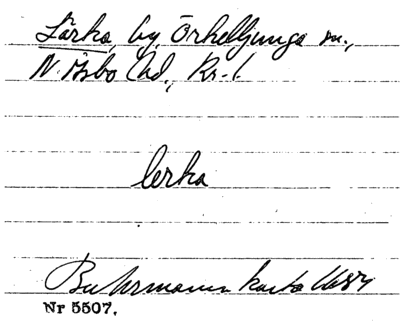 Lärka, by, Örkelljunga sn.,
N. Åsbo hd, Kr. l.
lerka
Buhrmanns karta 1684
Nr 5507.